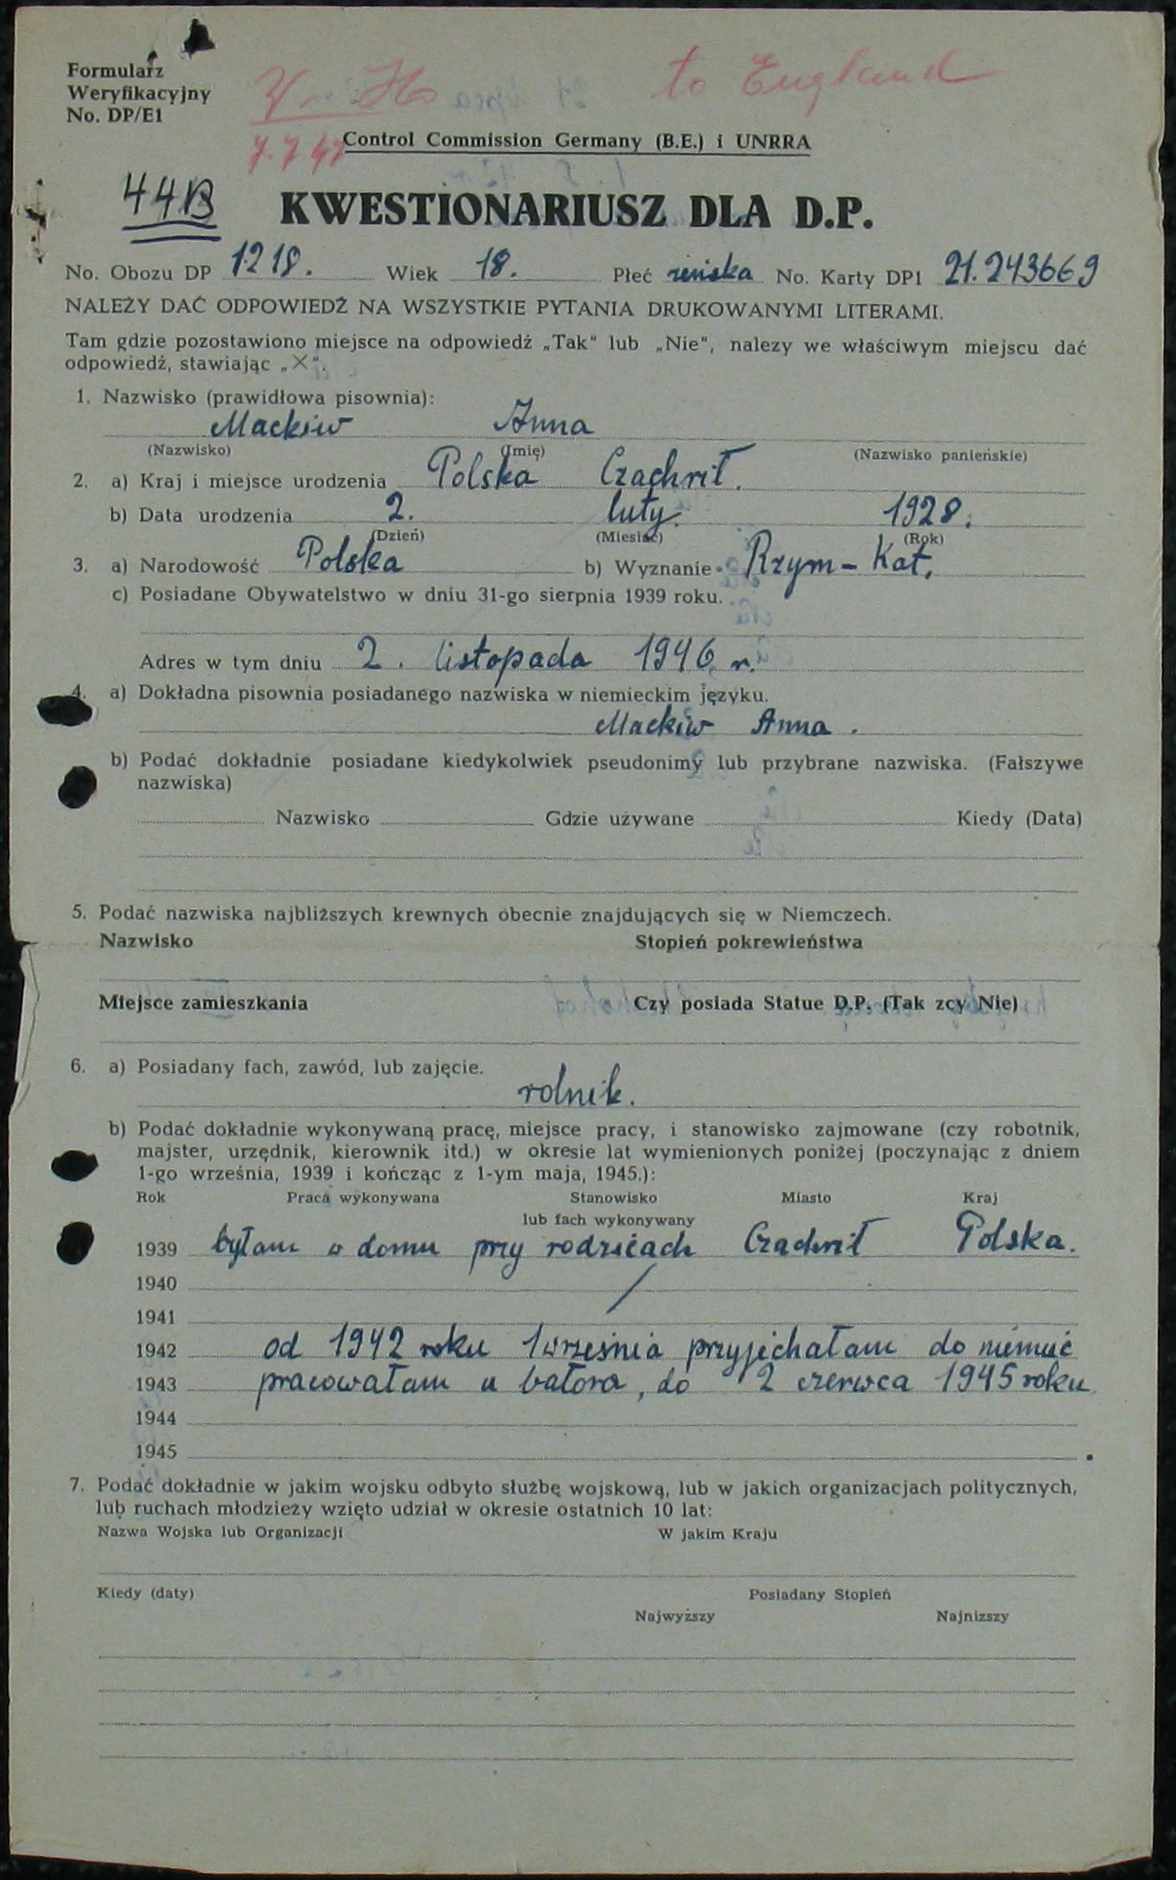 Formularz
Weryfikacyjny
No. DP/E1
to England
7.7.47
Control Commission Germany (B.E.) i UNRRA
44B
KWESTIONARIUSZ DLA D.P.
No. Obozu DP 1218. Wiek 18. Płeć żeńska No. Karty DP1 21.243669
NALEŻY DAĆ ODPOWIEDŹ NA WSZYSTKIE PYTANIA DRUKOWANYMI LITERAMI.
Tam gdzie pozostawiono miejsce na odpowiedź „Tak“ lub „Nie“, nalezy we właściwym miejscu dać
odpowiedź, stawiając „×“.
1. Nazwisko (prawidłowa pisownia):
Mackiw Anna
(Nazwisko) (Imię) (Nazwisko panieńskie)
2. a) Kraj i miejsce urodzenia Polska Czachrił.
b) Data urodzenia 2. luty. 1928.
(Dzień) (Miesiąc) (Rok)
3. a) Narodowość Polska b) Wyznanie Rzym-Kat.
c) Posiadane Obywatelstwo w dniu 31-go sierpnia 1939 roku.
Adres w tym dniu 2. listopada 1946 r.
4. a) Dokładna pisownia posiadanego nazwiska w niemieckim języku.
Mackiw Anna.
b) Podać dokładnie posiadane kiedykolwiek pseudonimy lub przybrane nazwiska. (Fałszywe
nazwiska)
Nazwisko Gdzie używane Kiedy (Data)
5. Podać nazwiska najbliższych krewnych obecnie znajdujących się w Niemczech.
Nazwisko Stopień pokrewieństwa
Miejsce zamieszkania Czy posiada Statue D.P. (Tak zcy Nie)
6. a) Posiadany fach, zawód, lub zajęcie.
rolnik.
b) Podać dokładnie wykonywaną pracę, miejsce pracy, i stanowisko zajmowane (czy robotnik,
majster, urzędnik, kierownik itd.) w okresie lat wymienionych poniżej (poczynając z dniem
1-go września, 1939 i kończąc z 1-ym maja, 1945.):
Rok Praca wykonywana Stanowisko Miasto Kraj
lub fach wykonywany
1939 byłam w domu przy rodzicach Czachrił Polska.
1940
1941
1942 od 1942 roku 1 września przyjichałam do niemiić
1943 pracowałam u bałora, do 2 czerwca 1945 roku
1944
1945
7. Podać dokładnie w jakim wojsku odbyto służbę wojskową, lub w jakich organizacjach politycznych,
lub ruchach młodzieży wzięto udział w okresie ostatnich 10 lat:
Nazwa Wojska lub Organizacji W jakim Kraju
Kiedy (daty) Posiadany Stopień
Najwyższy Najnizszy